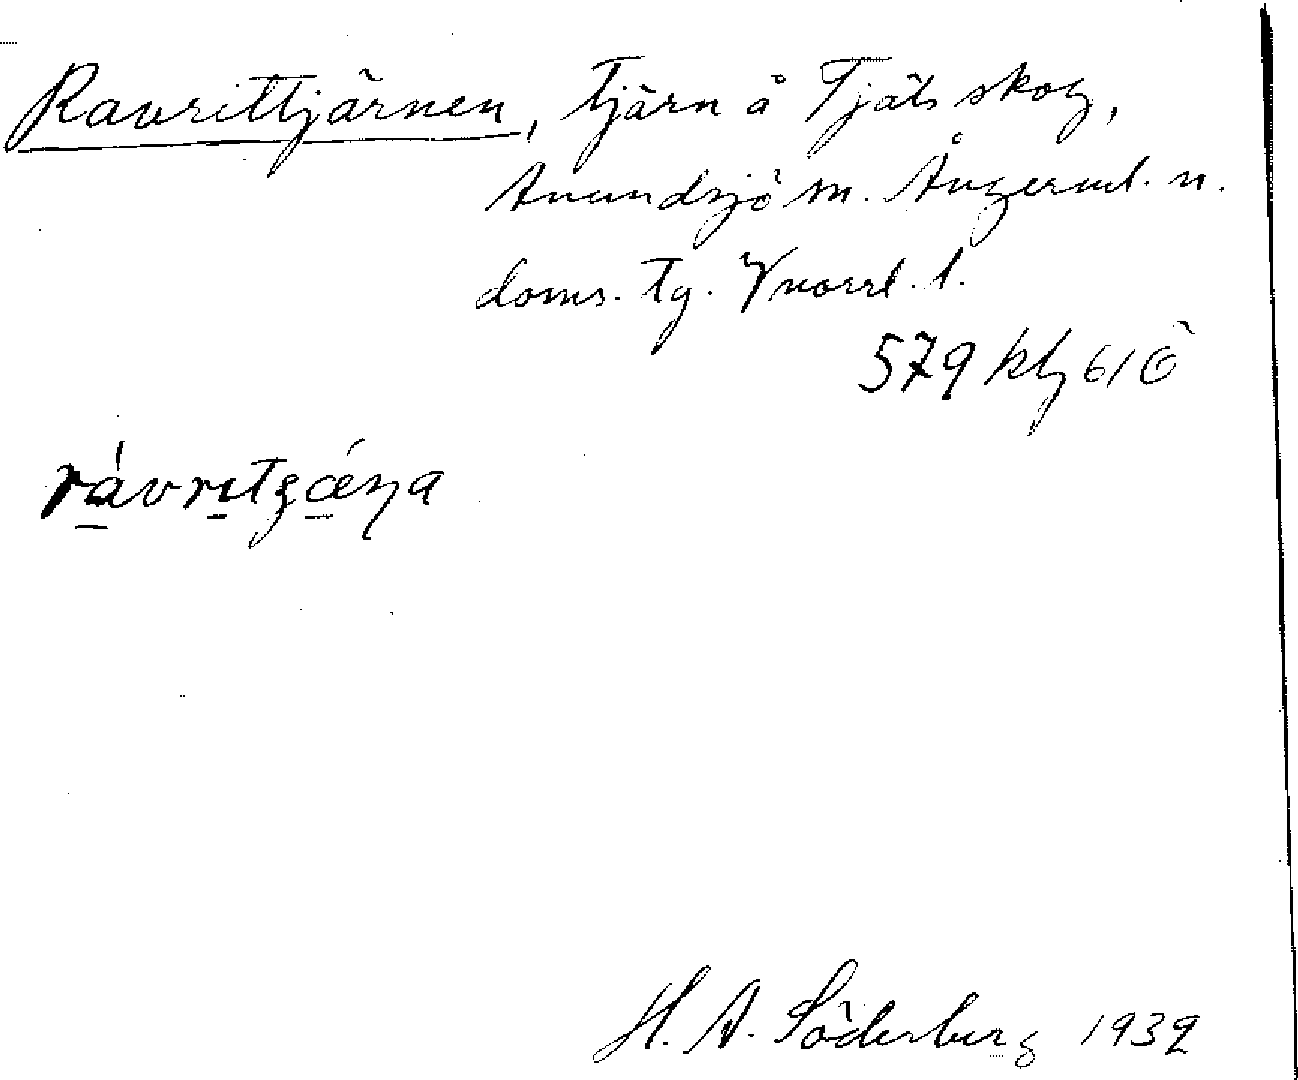 Ravrittjärnen, tjärn å Tjäls skog,
Anundsjö sn. Ångerml. n.
doms. tg. Vnorrl. l.
579 kbg 61 Ö
H. A. Söderberg 1932